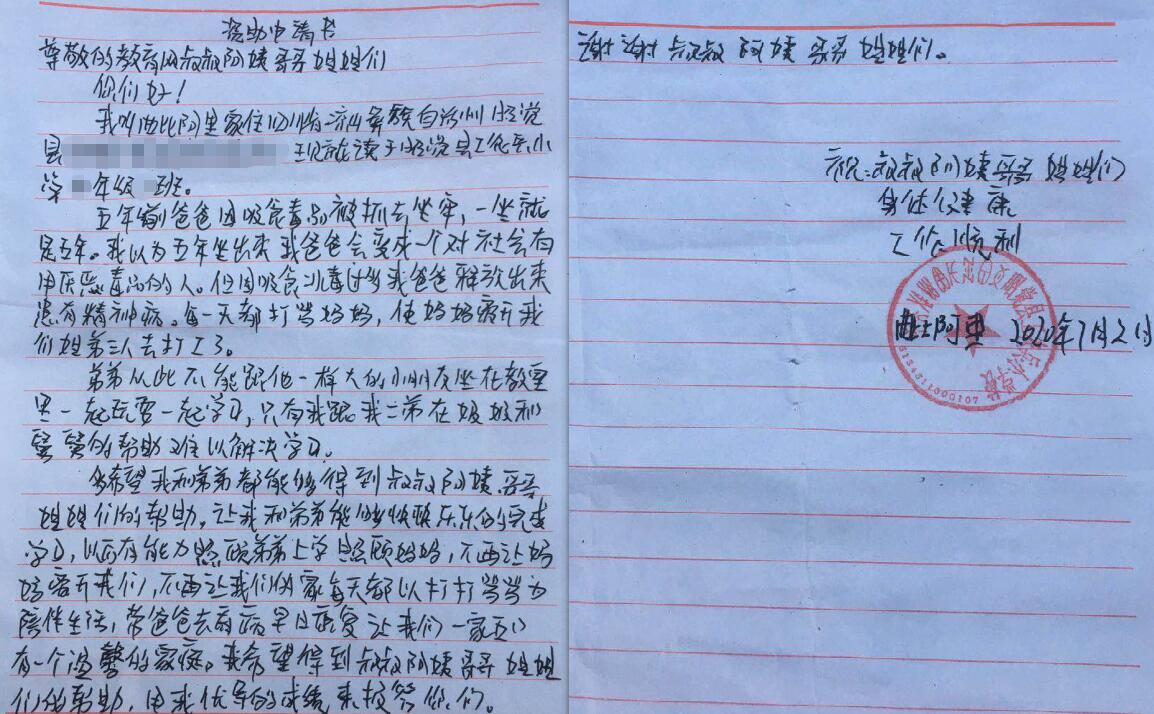 资助申请书
尊敬的教育网叔叔阿姨哥哥姐姐们
你们好！
我叫曲比阿里家住四川省凉山彝族自治州昭觉
县 现就读于昭觉县工农兵小
学 年级 班。
五年前爸爸因吸食毒品被抓去坐牢，一坐就
是五年。我以为五年坐出来我爸爸会变成一个对社会有
用厌恶毒品的人。但因吸食冰毒过多我爸爸释放出来
患有精神病。每一天都打骂妈妈，使妈妈离开我
们姐弟三人去打工了。
弟弟从此不能跟他一样大的小朋友坐在教室
里一起玩耍一起学习，只有我跟我二弟在
的帮助难以解决学习。
希望我和弟弟都能够得到叔叔阿姨哥哥
姐姐们的帮助。让我和弟弟能够快快乐乐的完成
学习，以后有能力照顾弟弟上学照顾妈妈，不再让妈
妈离开我们，不再让我们的家每天都以打打骂骂为
陪伴生活，带爸爸去看病早日康复让我们一家五口
有一个温馨的家庭。我希望得到叔叔阿姨哥哥姐姐
们的帮助，用我优异的成绩来报答你们。
谢谢叔叔阿姨哥哥姐姐们。
祝：叔叔阿姨哥哥姐姐们
身体健康
工作顺利
阿里 2020年7月2日
5134311000107